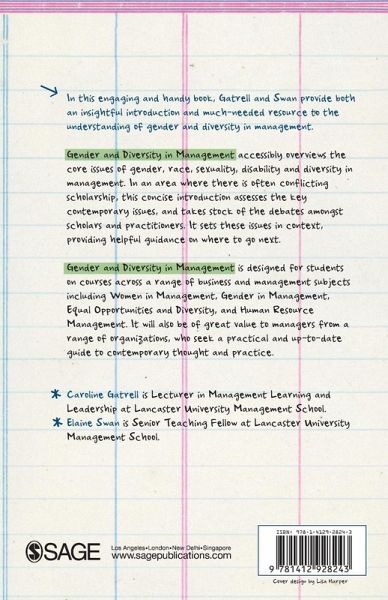 In this engaging and handy book, Gatrell and Swan provide both
an insightful introduction and much-needed resource to the
understanding of gender and diversity in management.
Gender and Diversity in Management accessibly overviews the
core issues of gender, race, sexuality, disability and diversity in
management. In an area where there is often conflicting
scholarship, this concise introduction assesses the key
contemporary issues, and takes stock of the debates amongst
scholars and practitioners. It sets these issues in context,
providing helpful guidance on where to go next.
Gender and Diversity in Management is designed for students
on courses across a range of business and management subjects
including Women in Management, Gender in Management,
Equal Opportunities and Diversity, and Human Resource
Management. It will also be of great value to managers from a
range of organizations, who seek a practical and up-to-date
guide to contemporary thought and practice.
* Caroline Gatrell is Lecturer in Management Learning and
Leadership at Lancaster University Management School.
* Elaine Swan is Senior Teaching Fellow at Lancaster University
Management School.
ISBN: 978-1-4129-2824-3
9 781412 928243
Cover design by Lisa Harper
SAGE
Los Angeles•London•New Delhi•Singapore
www.sagepublications.com